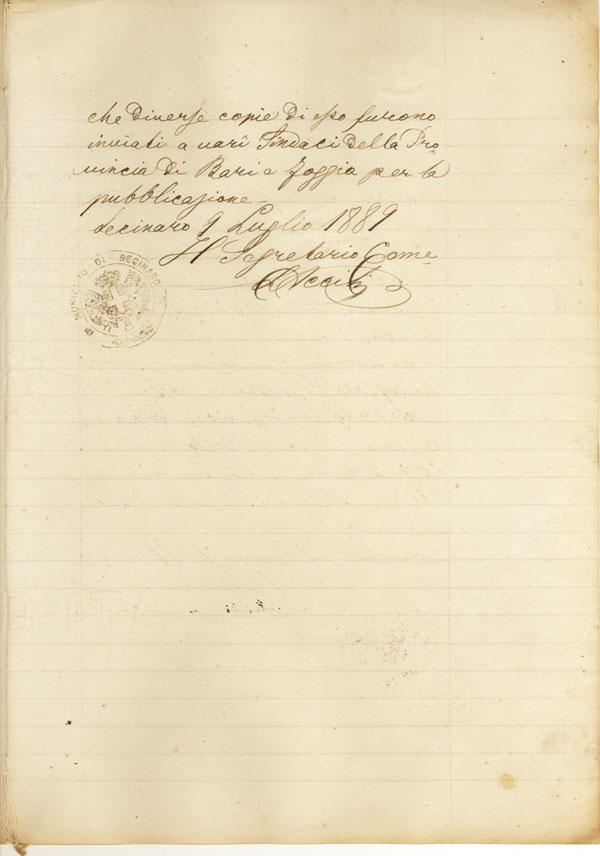 che diverse copie di esso furono
inviati a varî Sindaci della Pro-
vincia di Bari e Foggia per la
pubblicazione
Secinaro 9 Luglio 1889
Il Segretario Come
MUNICIPIO DI SECINARO